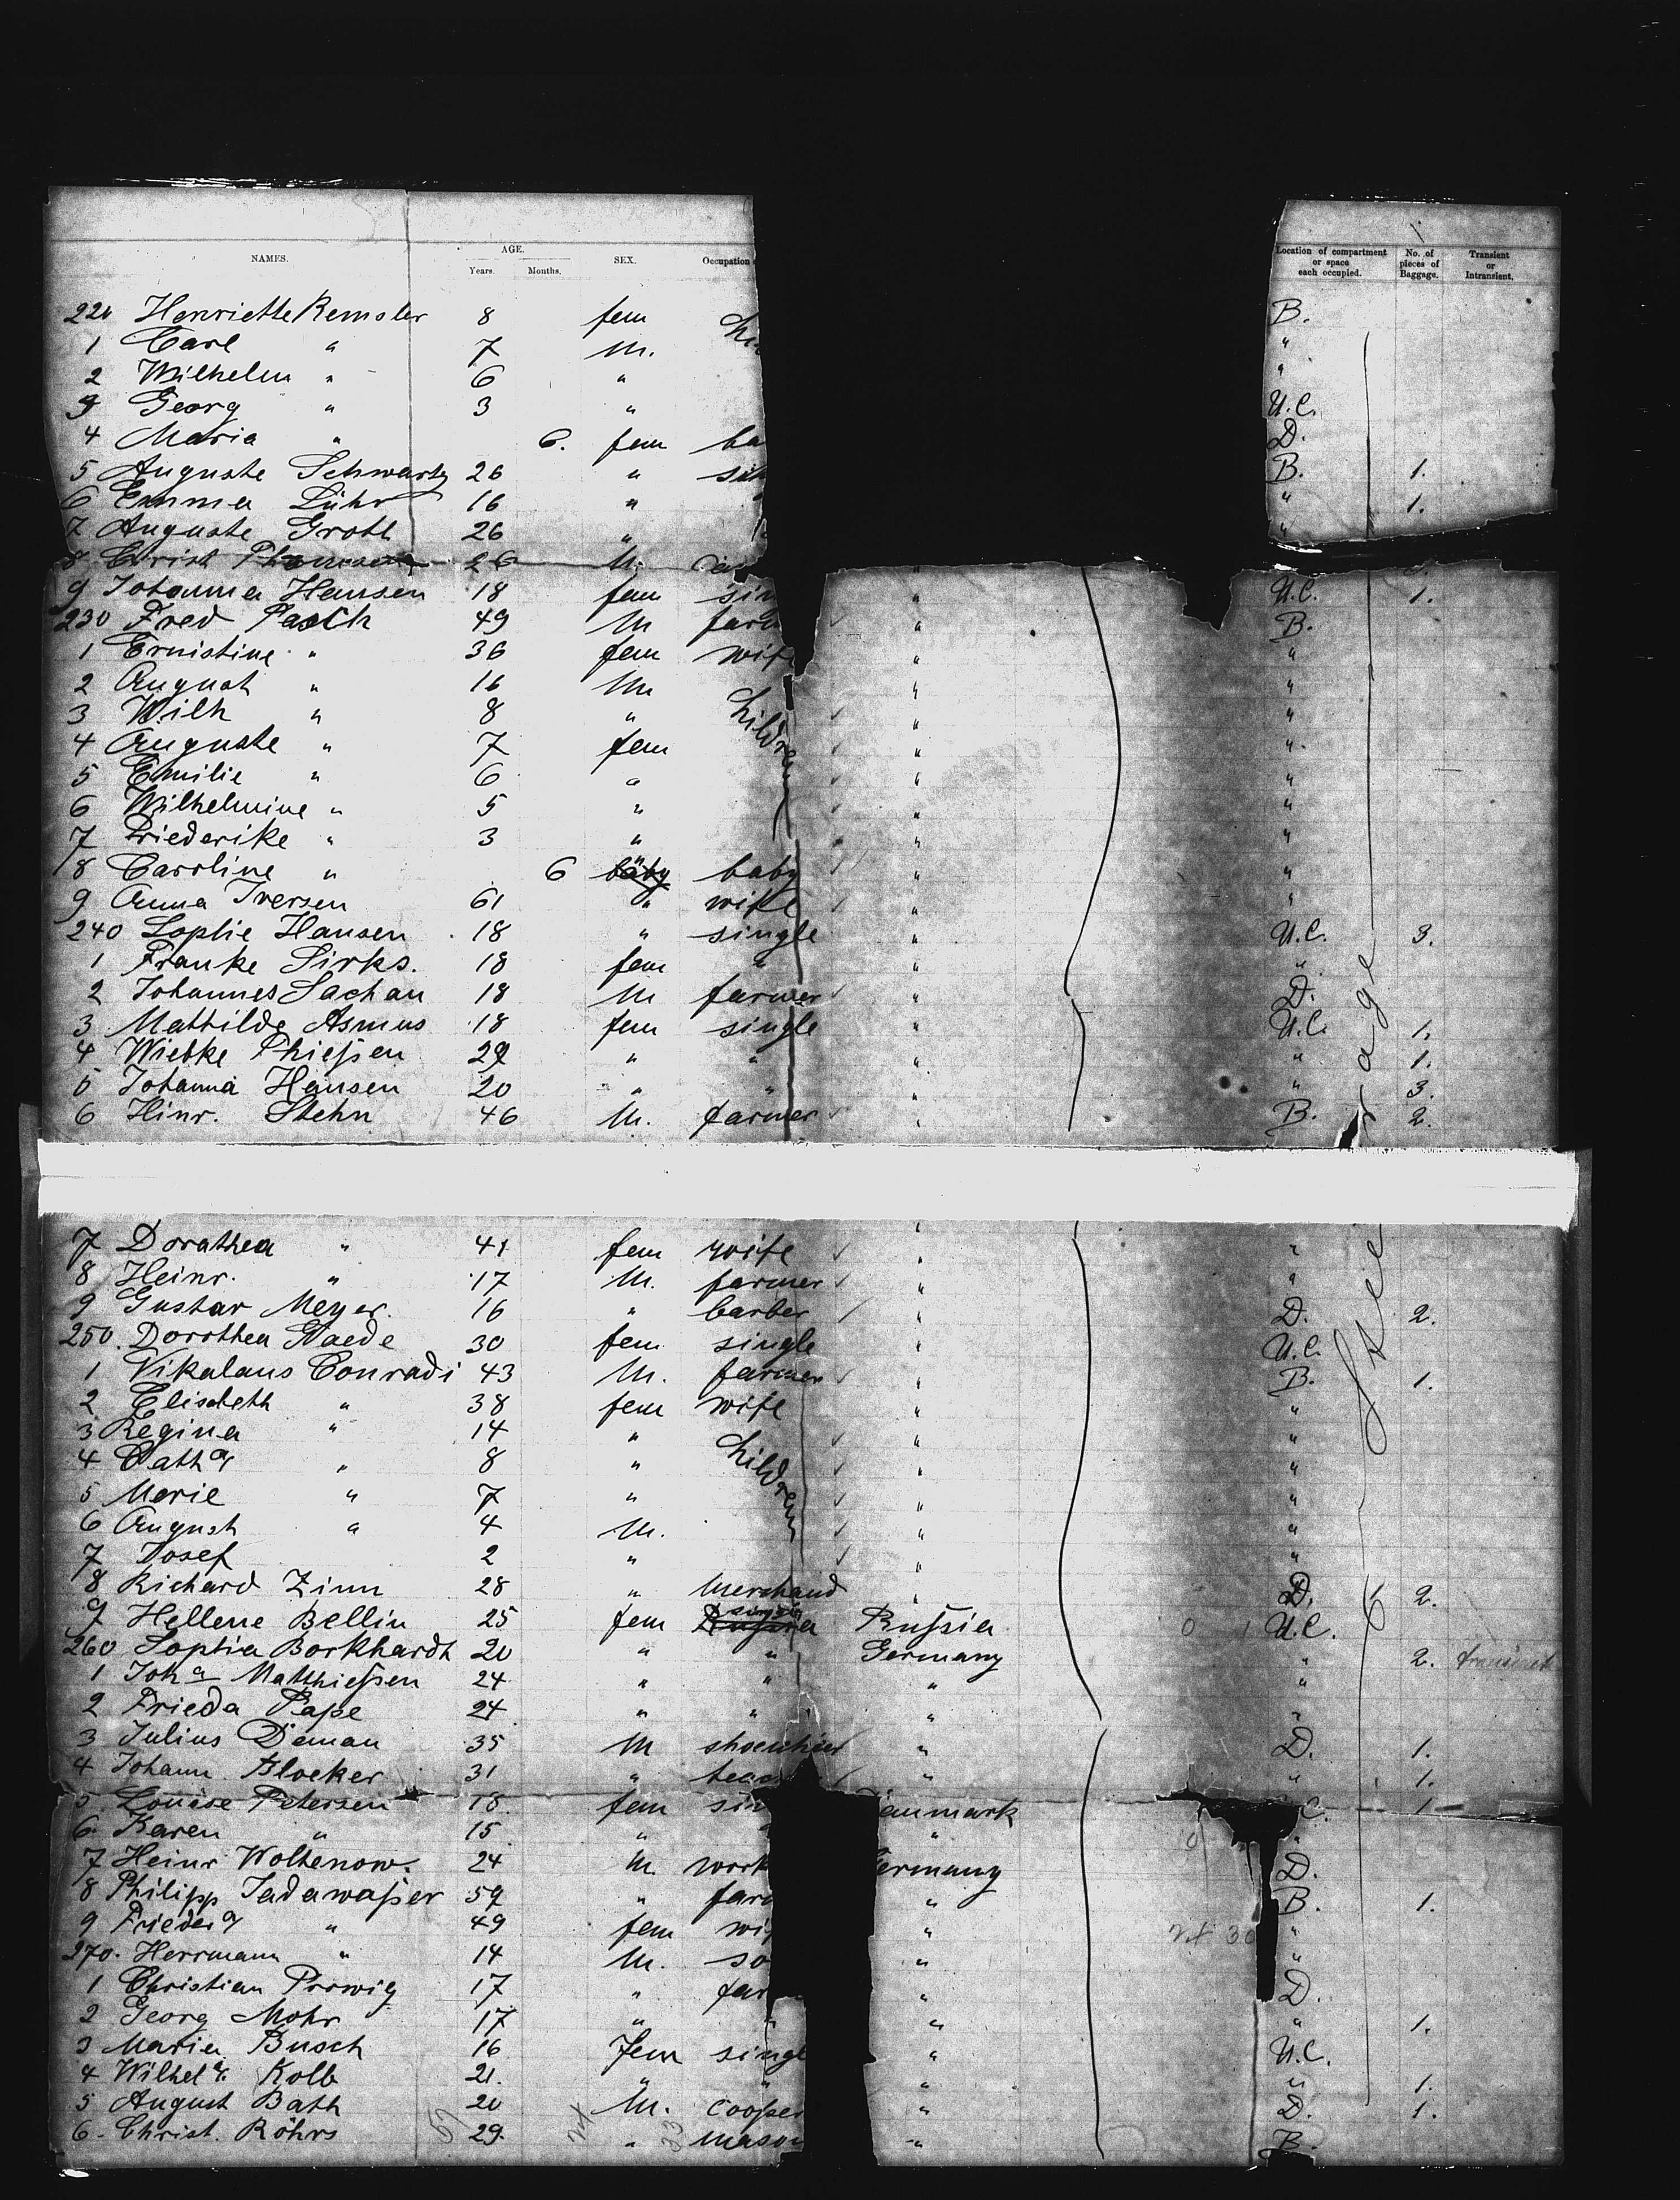 NAMES. AGE. Years. Months. SEX. Occupation Location of compartment or space each occupied. No. of pieces of Baggage. Transient or Intransient.
220 Henriette Remsler 8 fem B.
1 Carl " 7 M. "
2 Wilhelm " 6 " "
3 Georg " 3 " U.C.
4 Maria " 6. fem ba D.
5 Auguste Schwartz 26 " sin B. 1.
6 Emma Lühr 16 " " 1.
7 Auguste Groth 26 " "
8 Christ 26 M. "
9 Johanna Hansen 18 fem sin " U.C. 1.
230 Fred Pasch 49 M farm " B.
1 Ernistine " 36 fem wife " "
2 August " 16 M children " "
3 Wilh " 8 " " "
4 Auguste " 7 fem " "
5 Emilie " 6 " " "
6 Wilhelmine " 5 " " "
7 Friederike " 3 " " "
8 Caroline " 6 baby " baby " "
9 Anna Iversen 61 " wife " "
240 Sophie Hansen 18 " single " U.C. 3.
1 Frauke Sirks. 18 fem " " "
2 Johannes Sachau 18 M farmer " D.
3 Mathilde Asmus 18 fem single " U.C. 1.
4 Wiebke Thießen 22 " " " " 1.
5 Johanna Hansen 20 " " " " 3.
6 Hinr. Stehn 46 M. farmer " B. 2.
7 Dorathea " 41 fem wife " "
8 Heinr. " 17 M. farmer " "
9 Gustav Meyer. 16 " barber " D. 2.
250. Dorothea Gaede 30 fem single " U.C.
1 Nikolaus Conradi 43 M. farmer " B. 1.
2 Elisabeth " 38 fem wife " "
3 Regina " 14 " children " "
4 Cath a " 8 " " "
5 Marie " 7 " " "
6 August " 4 M. " "
7 Josef 2 " " "
8 Richard Zinn 28 " merchand " D. 2.
9 Hellene Bellin 25 fem Russia single Russia 0 1 U.C.
260 Sophia Borkhardt 20 " " Germany " 2. transient
1 Joh a Matthießen 24 " " " "
2 Frieda Pape 24 " " " "
3 Julius Daman 35 M " D. 1.
4 Johann Blocker 31 " teac " " 1.
5 Louise Petersen 18 fem sin enmark C. 1
6 Karen " 15 " " " "
7 Heinr Woltenow. 24 M. work ermany D.
8 Philipp Sadawaßer 59 " farm " B. 1.
9 Frieder a " 49 fem wif " "
270. Herrmann " 14 M. so " "
1 Christian Prowig 17 " far " D.
2 Georg Mohr 17 " " " " 1.
3 Maria Busch 16 fem singl " U.C.
4 Wilhel e Kolb 21. " " " " 1.
5 August Bath 20 M. cooper " D. 1.
6. Christ. Röhrs 29. " mason " B.
Steerage